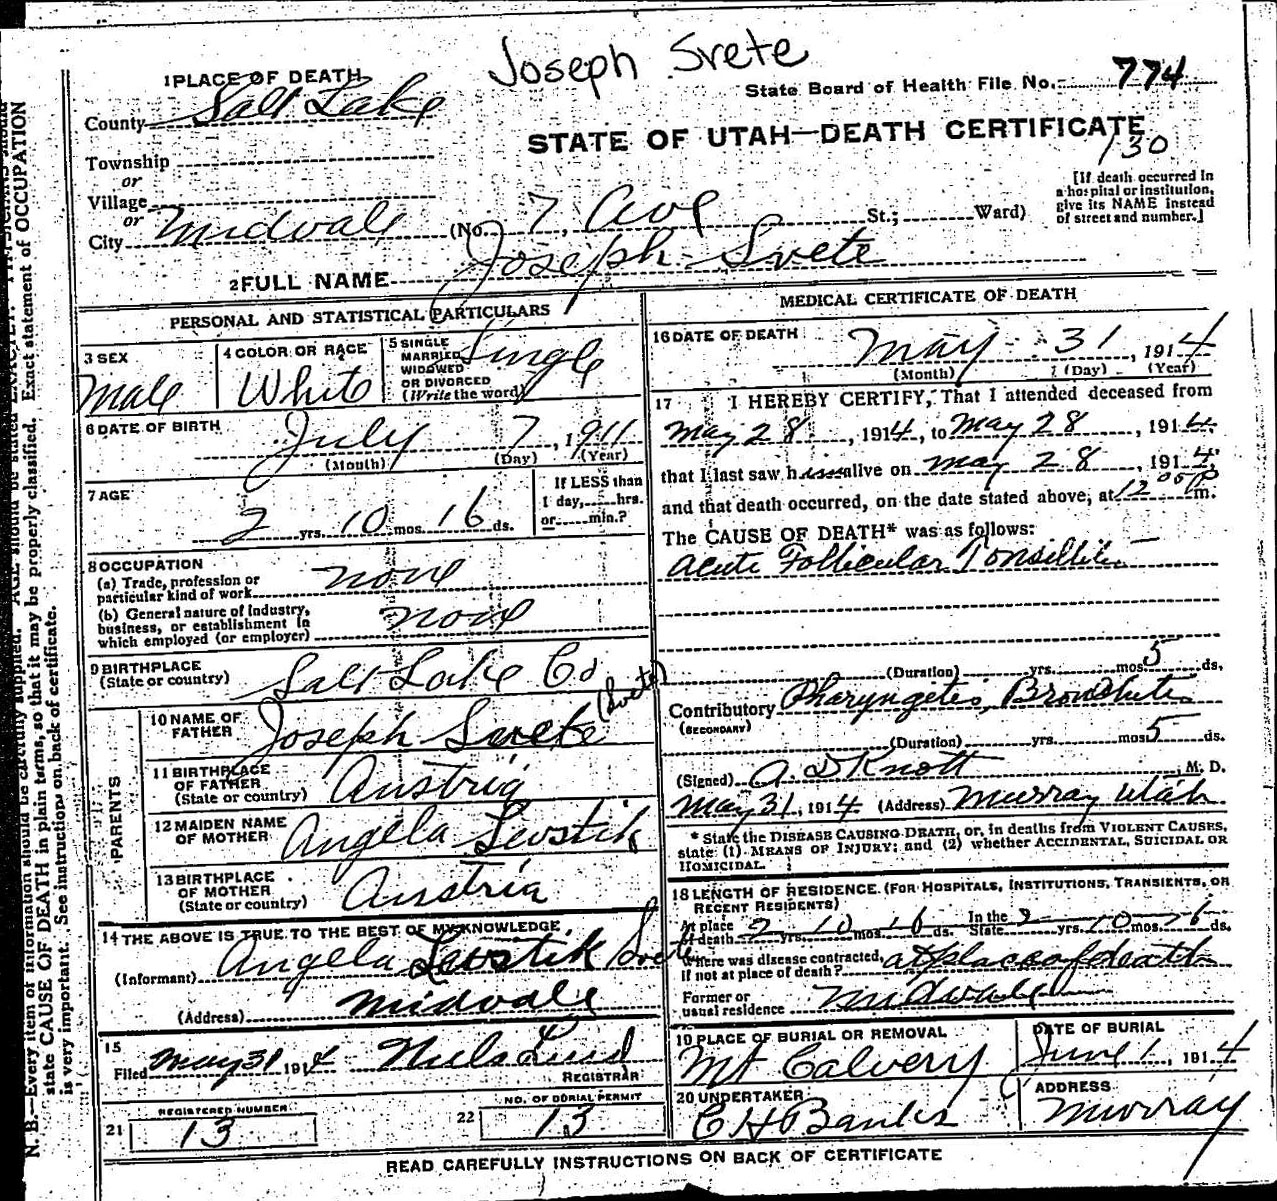 Joseph Svete
1 PLACE OF DEATH
State Board of Health File No. 774
County Salt Lake
STATE OF UTAH—DEATH CERTIFICATE
130
Township
or
Village
or
City Midvale (No. 7, Ave St.; Ward)
[If death occurred in
a hospital or institution,
give its NAME instead
of street and number.]
2 FULL NAME Joseph Svete
PERSONAL AND STATISTICAL PARTICULARS
3 SEX
Male
4 COLOR OR RACE
White
5 SINGLE
MARRIED
WIDOWED
OR DIVORCED
(Write the word)
Single
6 DATE OF BIRTH
July 7, 1911
(Month) (Day) (Year)
7 AGE
2 yrs. 10 mos. 16 ds.
If LESS than
1 day, hrs.
or min.?
8 OCCUPATION
(a) Trade, profession or
particular kind of work none
(b) General nature of Industry,
business, or establishment in
which employed (or employer) none
9 BIRTHPLACE
(State or country) Salt Lake Co
PARENTS
10 NAME OF
FATHER Joseph Svete (Svete)
11 BIRTHPLACE
OF FATHER
(State or country) Austria
12 MAIDEN NAME
OF MOTHER Angela Levstik
13 BIRTHPLACE
OF MOTHER
(State or country) Austria
14 THE ABOVE IS TRUE TO THE BEST OF MY KNOWLEDGE
(Informant) Angela Levstik Svete
(Address) Midvale
15
Filed May 31 1914 Niels Lind
REGISTRAR
REGISTERED NUMBER
21 13
NO. OF BURIAL PERMIT
22 13
MEDICAL CERTIFICATE OF DEATH
16 DATE OF DEATH
May 31, 1914
(Month) (Day) (Year)
17 I HEREBY CERTIFY, That I attended deceased from
May 28, 1914, to May 28, 1914
that I last saw him alive on May 28, 1914,
and that death occurred, on the date stated above, at 12 05 P m.
The CAUSE OF DEATH* was as follows:
Acute Follicular Tonsillitis
(Duration) yrs. mos. 5 ds.
Contributory Pharyngetis, Bronchitis
(SECONDARY)
(Duration) yrs. mos. 5 ds.
(Signed) A. D Knott, M. D.
May 31, 1914 (Address) Murray Utah
* State the DISEASE CAUSING DEATH, or, in deaths from VIOLENT CAUSES,
state (1) MEANS OF INJURY; and (2) whether ACCIDENTAL, SUICIDAL OR
HOMICIDAL.
18 LENGTH OF RESIDENCE (FOR HOSPITALS, INSTITUTIONS, TRANSIENTS, OR
RECENT RESIDENTS)
At place
of death 2 yrs. 10 mos. 16 ds. In the
State 2 yrs. 10 mos. 16 ds.
Where was disease contracted,
if not at place of death? at place of death
Former or
usual residence Midvale
19 PLACE OF BURIAL OR REMOVAL
Mt Calvery
DATE OF BURIAL
June 1, 1914
20 UNDERTAKER
C H Banks
ADDRESS
Murray
READ CAREFULLY INSTRUCTIONS ON BACK OF CERTIFICATE
N. B.—Every item of information should be carefully supplied. AGE should be stated EXACTLY. PHYSICIANS should
state CAUSE OF DEATH in plain terms, so that it may be properly classified. Exact statement of OCCUPATION
is very important. See instruction on back of certificate.